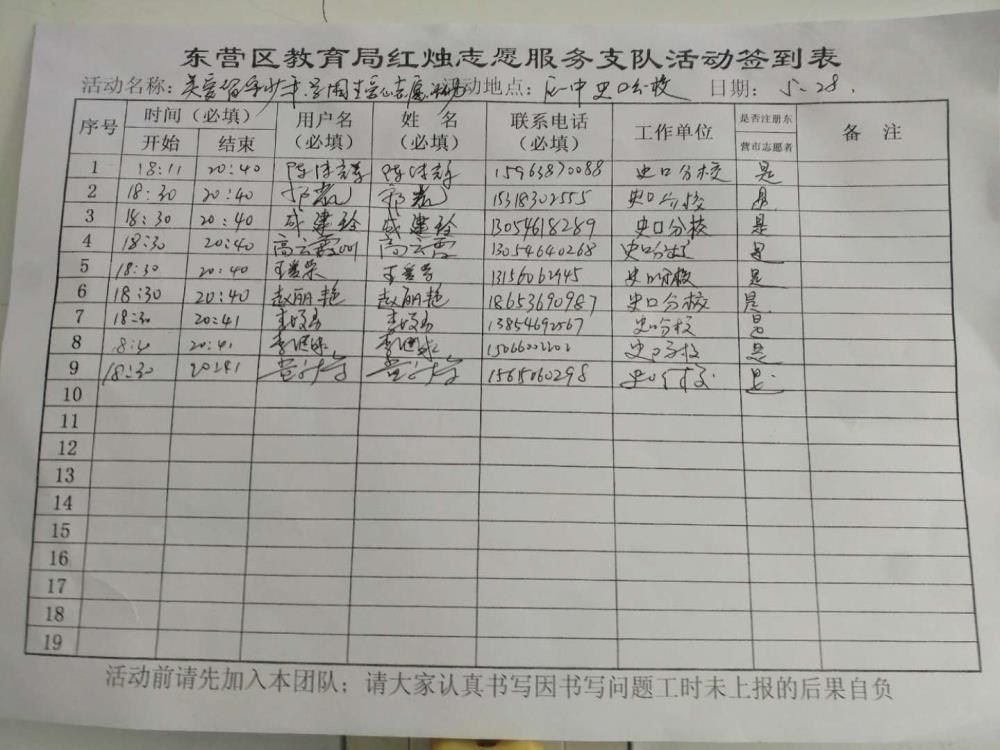 东营区教育局红烛志愿服务支队活动签到表
活动名称: 关爱留守少年 活动地点: 区一中史口分校 日期: 5.28.
序号 时间（必填） 用户名（必填） 姓 名（必填） 联系电话（必填） 工作单位 是否注册东营市志愿者 备 注
开始 结束
1 18:11 20:40 15963870088 史口分校 是
2 18:30 20:40 15318302555 史口分校 是
3 18:30 20:40 成建玲 成建玲 13054618289 史口分校 是
4 18:30 20:40 高云霞 高云霞 13054640268 史口分校 是
5 18:30 20:40 王爱荣 王爱荣 13156062945 史口分校 是
6 18:30 20:40 赵丽艳 赵丽艳 18653690987 史口分校 是
7 18:30 20:41 13854692567 史口分校 是
8 8:30 20:41 15066002202 史口分校 是
9 18:30 20:41 15615060298 史口分校 是
10
11
12
13
14
15
16
17
18
19
活动前请先加入本团队；请大家认真书写因书写问题工时未上报的后果自负